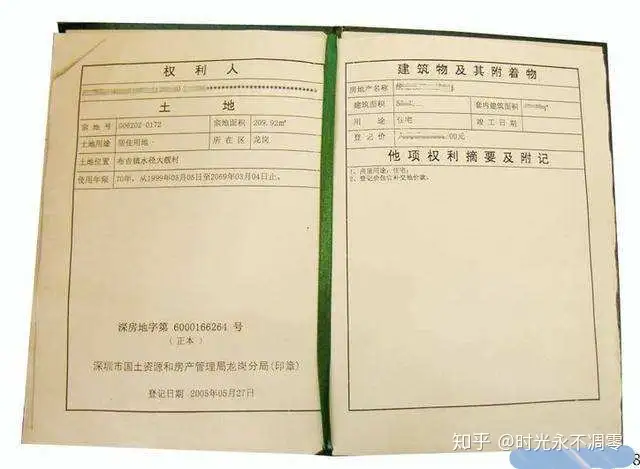 权利人
土地
宗地号 G06202-0172 宗地面积 209.92㎡
土地用途 居住用地 所在区 龙岗
土地位置 布吉镇水径大靓村
使用年限 70年，从1999年03月05日至2069年03月04日止。
深房地字第 6000166264 号
(正本)
深圳市国土资源和房产管理局龙岗分局(印章)
登记日期 2005年05月27日
建筑物及其附着物
房地产名称
建筑面积 套内建筑面积
用途 住宅 竣工日期
登记价 00元
他项权利摘要及附记
1、房屋用途：住宅；
知乎 @时光永不凋零